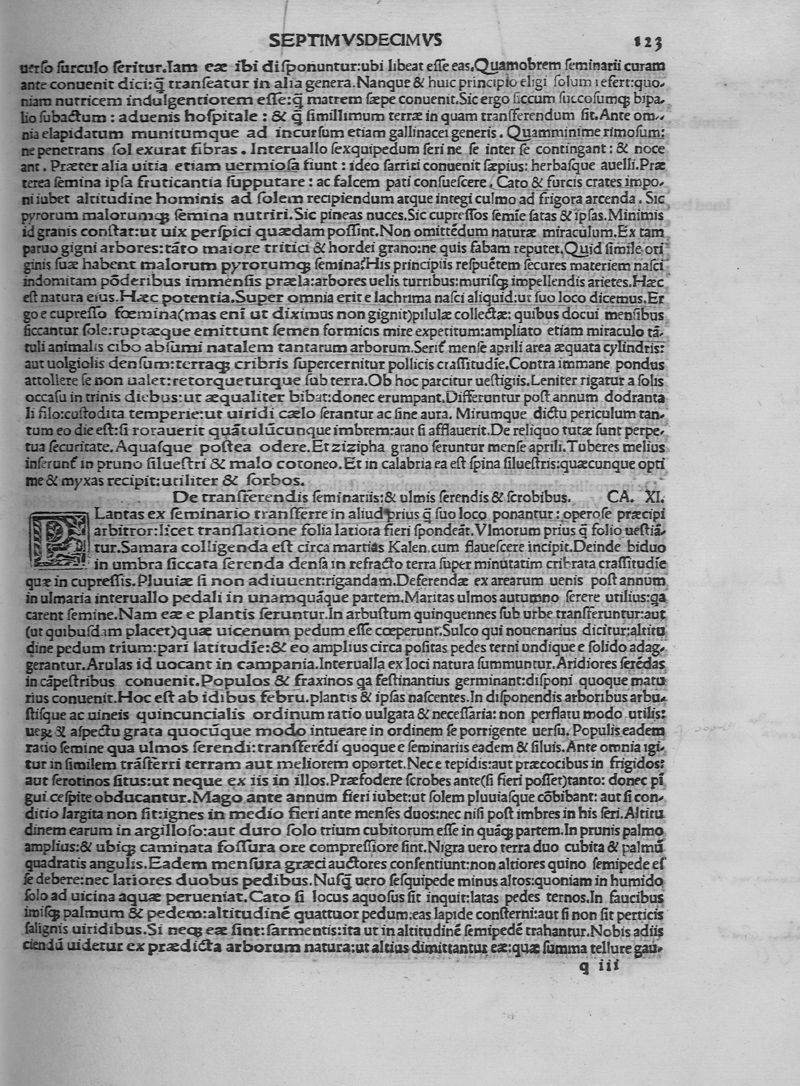 SEPTIMVSDECIMVS 123
uerſo ſurculo ſeritur.Iam eæ ibi diſponuntur:ubi libeat eſſe eas.Quamobrem ſeminarii curam
ante conuenit dici:q̃ tranſeatur in alia genera.Nanque & huic principio eligi ſolum refert:quo-
niam nutricem indulgentiorem eſſe:q̃ matrem ſæpe conuenit.Sic ergo ſiccum ſuccoſumqʒ bipa-
lio ſubactum : aduenis hoſpitale : & q̃ ſimillimum terræ in quam tranſferendum ſit.Ante om-
nia elapidatum munitumque ad incurſum etiam gallinacei generis . Quamminime rimoſum:
ne penetrans ſol exurat fibras . Interuallo ſexquipedum ſeri ne ſe inter ſe contingant : & noce
ant . Præter alia uitia etiam uermioſa fiunt : ideo ſarriri conuenit ſæpius: herbaſque auelli.Præ
terea ſemina ipſa fruticantia ſupputare : ac falcem pati conſueſcere . Cato & furcis crates impo-
ni iubet altitudine hominis ad ſolem recipiendum atque integi culmo ad frigora arcenda . Sic
pyrorum malorumqʒ ſemina nutriri.Sic pineas nuces.Sic cupreſſos ſemie ſatas & ipſas.Minimis
id granis conſtat:ut uix perſpici quædam poſſint.Non omittẽdum naturæ miraculum.Ex tam
paruo gigni arbores:tãto maiore tritici & hordei grano:ne quis fabam reputet.Quid ſimile ori
ginis ſuæ habent malorum pyrorumqʒ ſemina?His principiis reſpuẽtem ſecures materiem naſci
indomitam põderibus immenſis præla:arbores uelis turribus:muriſqʒ impellendis arietes.Hæc
eſt natura eius.Hæc potentia.Super omnia erit e lachrima naſci aliquid:ut ſuo loco dicemus.Er
go e cupreſſo fœmina(mas eni ut diximus non gignit)pilulæ collectæ: quibus docui menſibus
ſiccantur ſole:ruptæque emittunt ſemen formicis mire expetitum:ampliato etiam miraculo tã-
tuli animalis cibo abſumi natalem tantarum arborum.Serit̃ menſe aprili area æquata cylindris:
aut uolgiolis denſum:terraqʒ cribris ſupercernitur pollicis craſſitudie.Contra immane pondus
attollere ſe non ualet:retorqueturque ſub terra.Ob hoc parcitur ueſtigiis.Leniter rigatur a ſolis
occaſu in trinis diebus:ut æqualiter bibat:donec erumpant.Differuntur poſt annum dodranta
li filo:cuſtodita temperie:ut uiridi cælo ſerantur ac ſine aura. Mirumque dictu periculum tan-
tum eo die eſt:ſi rorauerit quãtulũcunque imbrem:aut ſi afflauerit.De reliquo tutæ ſunt perpe-
tua ſecuritate. Aquaſque poſtea odere. Et zizipha grano ſeruntur menſe aprili.Tuberes melius
inſerunt̃ in pruno ſilueſtri & malo cotoneo.Et in calabria ea eſt ſpina ſilueſtris:quæcunque opti
me & myxas recipit:utiliter & ſorbos.
De tranſferendis ſeminariis:& ulmis ſerendis & ſcrobibus. CA. XI.
PLantas ex ſeminario tranſferre in aliud prius q̃ ſuo loco ponantur : operoſe præcipi
arbitror:licet tranſlatione folia latiora fieri ſpondeãt.Vlmorum prius q̃ folio ueſtiã-
tur.Samara colligenda eſt circa martias Kalen.cum flaueſcere incipit.Deinde biduo
in umbra ſiccata ſerenda denſa in refracto terra ſuper minutatim cribrata craſſitudie
quæ in cupreſſis.Pluuiæ ſi non adiuuent:rigandam.Deferendæ ex arearum uenis poſt annum
in ulmaria interuallo pedali in unamquãque partem.Maritas ulmos autumno ſerere utilius:qa
carent ſemine.Nam eæ e plantis ſeruntur.In arbuſtum quinquennes ſub urbe tranſferuntur:aut
(ut quibuſdam placet)quæ uicenum pedum eſſe cœperunt.Sulco qui nouenarius dicitur:altitu
dine pedum trium:pari latitudie:& eo amplius circa poſitas pedes terni undique e ſolido adag-
gerantur.Arulas id uocant in campania.Interualla ex loci natura ſummuntur.Aridiores ſerẽdas
in cãpeſtribus conuenit.Populos & fraxinos qa feſtinantius germinant:diſponi quoque matu
rius conuenit.Hoc eſt ab idibus febru.plantis & ipſas naſcentes.In diſponendis arboribus arbu-
ſtiſque ac uineis quincuncialis ordinum ratio uulgata & neceſſaria: non perflatu modo utilis:
ueꝝ & aſpectu grata quocũque modo intueare in ordinem ſe porrigente uerſu. Populis eadem
ratio ſemine qua ulmos ſerendi:tranſferẽdi quoque e ſeminariis eadem & ſiluis.Ante omnia igi-
tur in ſimilem trãſferri terram aut meliorem oportet.Nec e tepidis:aut præcocibus in frigidos:
aut ſerotinos ſitus:ut neque ex iis in illos.Præfodere ſcrobes ante(ſi fieri poſſet)tanto: donec pĩ
gui ceſpite obducantur.Mago ante annum fieri iubet:ut ſolem pluuiaſque cõbibant: aut ſi con-
ditio largita non ſit:ignes in medio fieri ante menſes duos:nec niſi poſt imbres in his ſeri.Altitu
dinem earum in argilloſo:aut duro ſolo trium cubitorum eſſe in quãqʒ partem.In prunis palmo
amplius:& ubiqʒ caminata foſſura ore compreſſiore ſint.Nigra uero terra duo cubita & palmũ
quadratis angulis.Eadem menſura græci auctores conſentiunt:non altiores quino ſemipede eſ
ſe debere:nec latiores duobus pedibus.Nuſq̃ uero ſeſquipede minus altos:quoniam in humido
ſolo ad uicina aquæ perueniat.Cato ſi locus aquoſus ſit inquit:latas pedes ternos.In faucibus
imiſqʒ palmum & pedem:altitudinẽ quattuor pedum:eas lapide conſterni:aut ſi non ſit perticis
ſalignis uiridibus.Si neqʒ eæ ſint:ſarmentis:ita ut in altitudinẽ ſemipedẽ trahantur.Nobis adiis
ciendũ uidetur ex prædicta arborum natura:ut altius dimittantur eæ:quæ ſumma tellure gau-
q iii